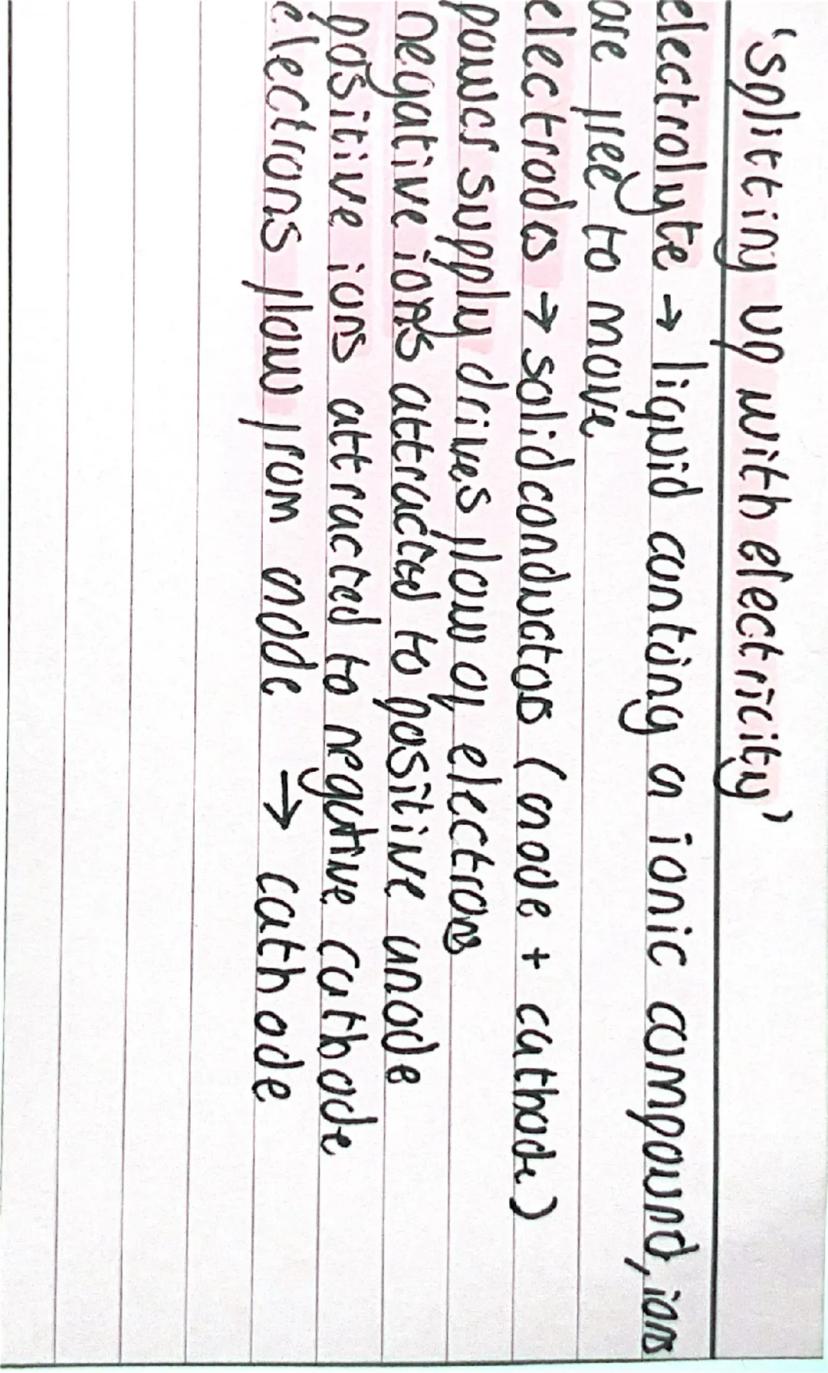 'splitting up with electricity'
electrolyte → liquid containg a ionic compound, ions
are free to move
electrodes → solid conductors (anode + cathode)
power supply drives flow of electrons
negative ions attracted to positive anode
positive ions attracted to negative cathode
electrons flow from anode → cathode